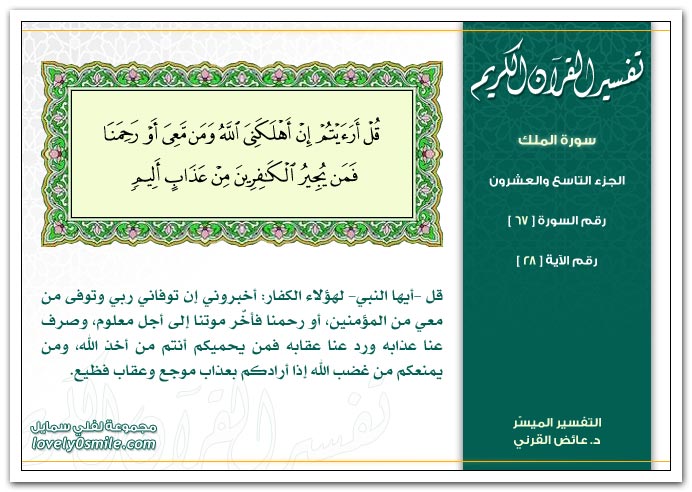 تفسير القرآن الكريم
سورة الملك
الجزء التاسع والعشرون
رقم السورة [ ٦٧ ]
رقم الآية [ ٢٨ ]
قُلْ أَرَءَيْتُمْ إِنْ أَهْلَكَنِىَ ٱللَّهُ وَمَن مَّعِىَ أَوْ رَحِمَنَا
فَمَن يُجِيرُ ٱلْكَـٰفِرِينَ مِنْ عَذَابٍ أَلِيمٍ
قل -أيها النبي- لهؤلاء الكفار: أخبروني إن توفاني ربي وتوفى من
معي من المؤمنين، أو رحمنا فأخّر موتنا إلى أجل معلوم، وصرف
عنا عذابه ورد عنا عقابه فمن يحميكم أنتم من أخذ الله، ومن
يمنعكم من غضب الله إذا أرادكم بعذاب موجع وعقاب فظيع.
التفسير الميسّر
د. عائض القرني
مجموعة لفلي سمايل
lovely0smile.com
تفسير القرآن الكريم